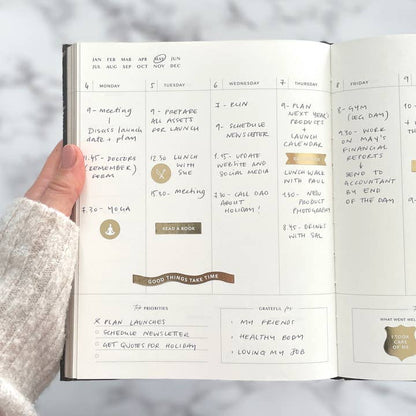 JAN FEB MAR APR MAY JUN
JUL AUG SEP OCT NOV DEC
4 MONDAY
9 - Meeting
Discuss launch
date + plan
DOCTORS
(REMEMBER)
FORM
7.30 - YOGA
5 TUESDAY
9 - PREPARE
ALL ASSETS
FOR LAUNCH
12.30 LUNCH
WITH
SUE
Meeting
READ A BOOK
6 WEDNESDAY
7 - RUN
9 - SCHEDULE
NEWSLETTER
UPDATE
WEBSITE AND
SOCIAL MEDIA
CALL DAD
ABOUT
HOLIDAY!
7 THURSDAY
9 - PLAN
NEXT YEAR'S
PRODUCTS
+
LAUNCH
CALENDAR
LUNCH WALK
WITH PAUL
NEW
PRODUCT
PHOTOGRAPHY
8.45 - DRINKS
WITH SAL
8 FRIDAY
8 - GYM
(LEG DAY)
9.30 - WORK
ON MAY'S
FINANCIAL
REPORTS
&
SEND TO
ACCOUNTANT
BY END
OF THE DAY
GOOD THINGS TAKE TIME
Top PRIORITIES
X PLAN LAUNCHES
SCHEDULE NEWSLETTER
GET QUOTES FOR HOLIDAY
GRATEFUL for
MY FRIENDS
HEALTHY BODY
LOVING MY JOB
WHAT WENT WELL
I TOOK
CARE
OF ME